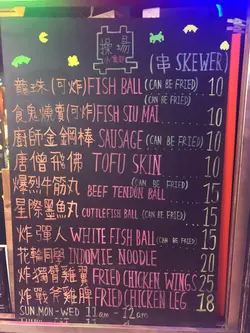 操場
(串 SKEWER)
龍珠(可炸)FISH BALL (CAN BE FRIED) 10
(CAN BE FRIED)
食鬼燒賣(可炸)FISH SIU MAI 10
廚師金鋼棒 SAUSAGE (CAN BE FRIED) 10
唐僧飛佛 TOFU SKIN 10
爆烈牛筋丸 BEEF TENDON BALL 15
星際墨魚丸 CUTTLEFISH BALL (CAN BE FRIED) 15
炸彈人 WHITE FISH BALL (CAN BE FRIED) 15
花輪同學 INDOMIE NOODLE 20
炸獨臂雞翼 FRIED CHICKEN WINGS 25
炸戰斧雞髀 FRIED CHICKEN LEG 18
SUN.MON-WED 11am - 12am